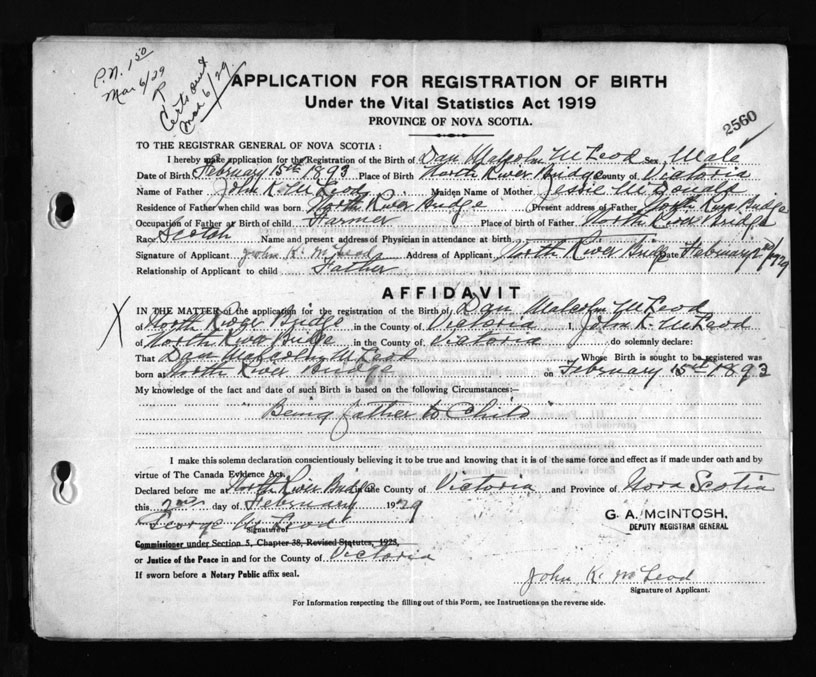 P.N. 1.50
Mar 6/29
Certs
Mar 6/29.
APPLICATION FOR REGISTRATION OF BIRTH
Under the Vital Statistics Act 1919
PROVINCE OF NOVA SCOTIA.
2560
TO THE REGISTRAR GENERAL OF NOVA SCOTIA :
I hereby make application for the Registration of the Birth of Dan Malcolm McLeod Sex Male
Date of Birth February 15th 1893 Place of Birth North River Bridge County of Victoria
Name of Father John K. McLeod Maiden Name of Mother Jessie McDonald
Residence of Father when child was born North River Bridge Present address of Father North River Bridge
Occupation of Father at Birth of child Farmer Place of birth of Father North River Bridge
Race Scotch Name and present address of Physician in attendance at birth
Signature of Applicant John K. McLeod Address of Applicant North River Bridge Date February 2nd 1929
Relationship of Applicant to child Father
AFFIDAVIT
IN THE MATTER of the application for the registration of the Birth of Dan Malcolm McLeod
of North River Bridge in the County of Victoria I, John K. McLeod
of North River Bridge in the County of Victoria do solemnly declare:
That Dan Malcolm McLeod Whose Birth is sought to be registered was
born at North River Bridge on February 15th 1893
My knowledge of the fact and date of such Birth is based on the following Circumstances:—
"Being father to Child"
I make this solemn declaration conscientiously believing it to be true and knowing that it is of the same force and effect as if made under oath and by
virtue of The Canada Evidence Act.
Declared before me at North River Bridge in the County of Victoria and Province of Nova Scotia
this 2nd day of February 1929
G. A. McINTOSH,
DEPUTY REGISTRAR GENERAL
George McLeod
Signature of
Commissioner under Section 5, Chapter 38, Revised Statutes, 1923,
or Justice of the Peace in and for the County of Victoria
If sworn before a Notary Public affix seal.
John K. McLeod
Signature of Applicant.
For Information respecting the filling out of this Form, see Instructions on the reverse side.